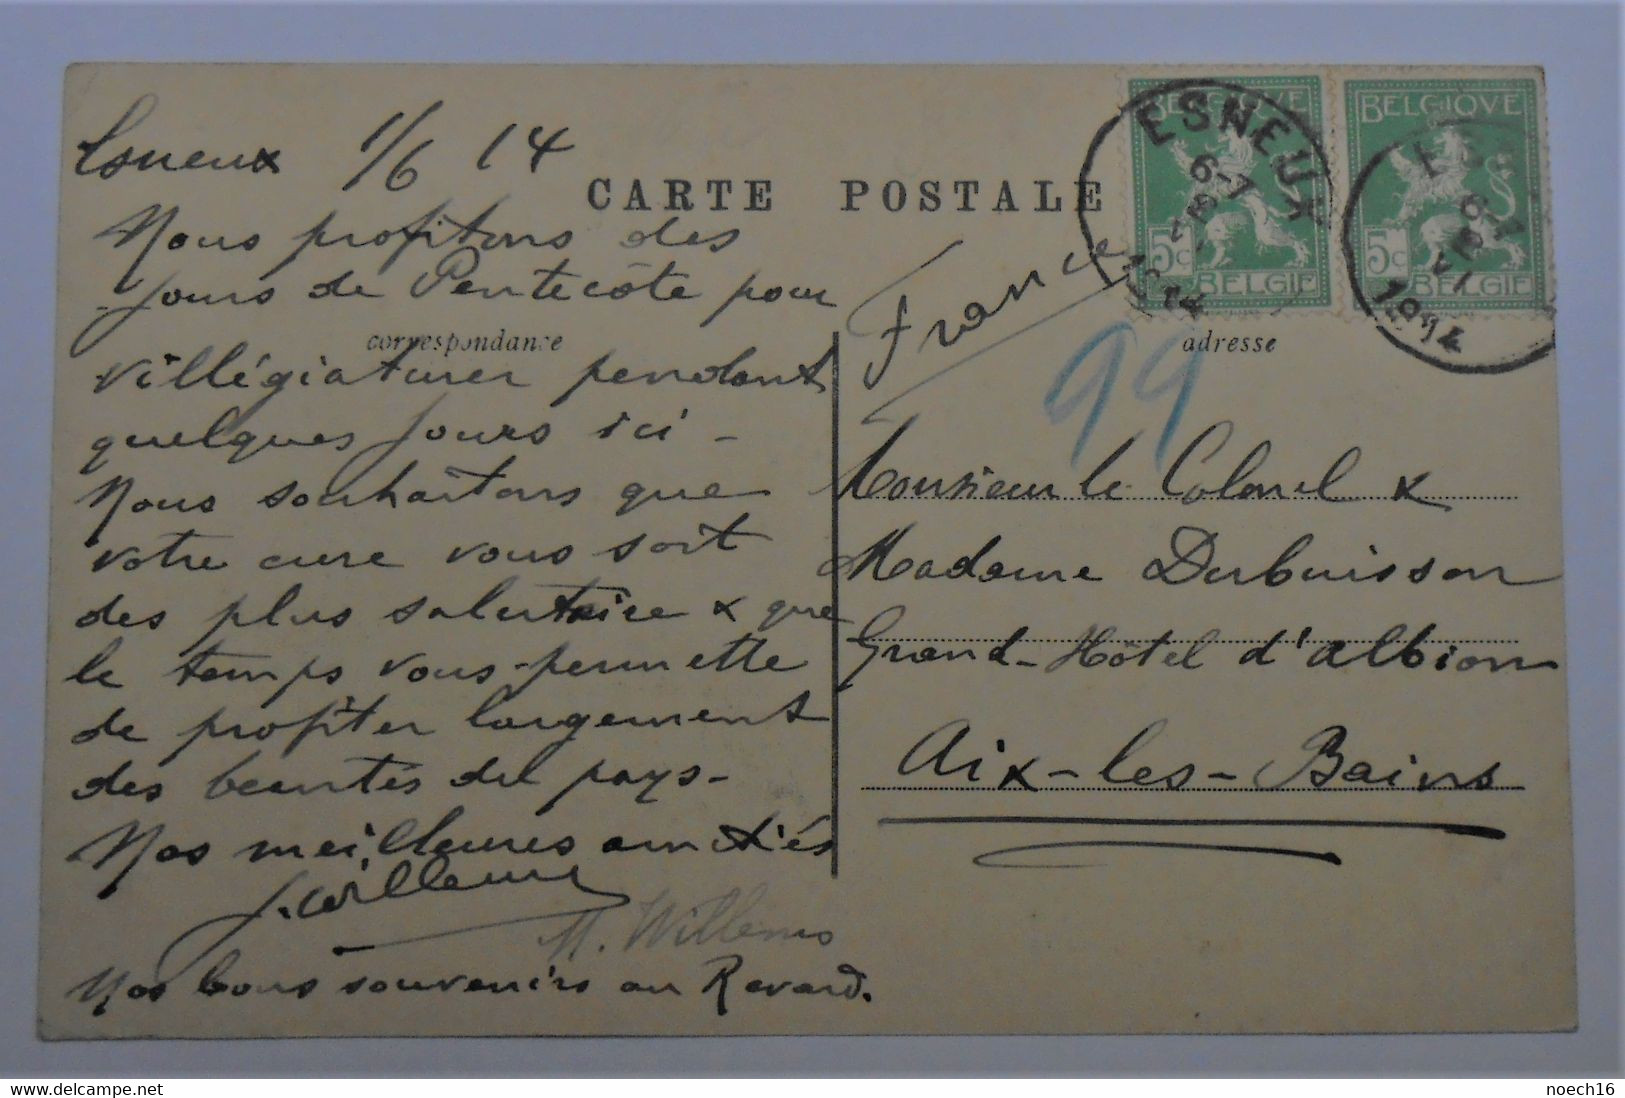 Esneux 1/6 14
CARTE POSTALE
Nous profitons des
jours de Pentecôte pour
correspondance
villégiaturer pendant
quelques jours ici -
Nous souhaitons que
votre cure vous soit
des plus salutaire & que
le temps vous permette
de profiter largement
des beautés du pays -
Nos meilleures amitiés
J. Willems
M. Willems
Nos bons souvenirs au Revard.
BELGIQUE
5c
BELGIE
ESNEUX
6-7
VI
1914
BELGIQUE
5c
BELGIE
ES
6-7
VI
1914
France
adresse
99
Monsieur le Colonel &
Madame Dubuisson
Grand-Hôtel d'Albion
Aix-les-Bains
noech16